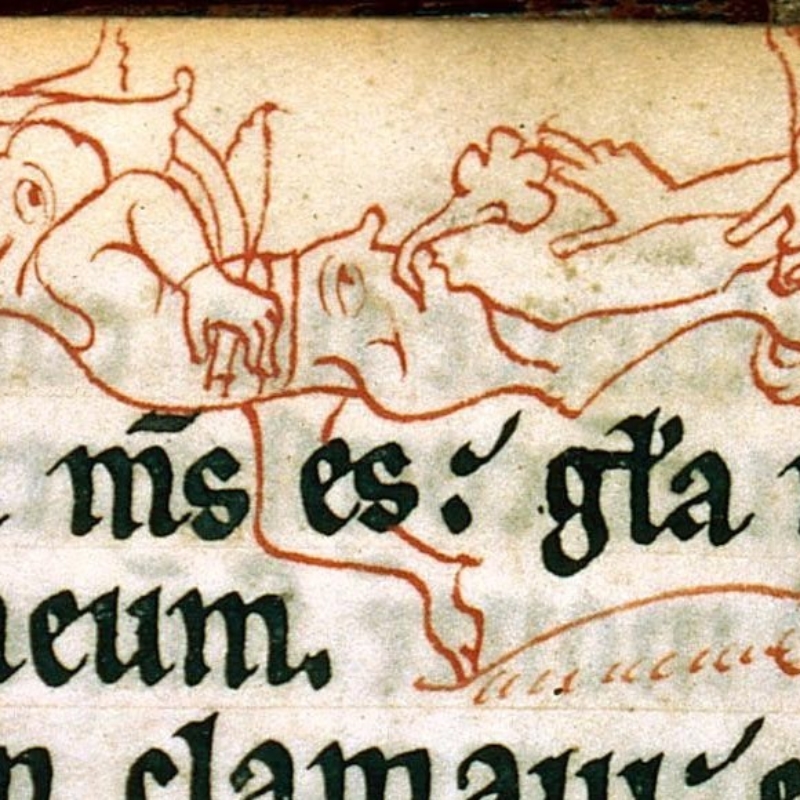 m̄s es: gl̄a
meum.
clamaui: e